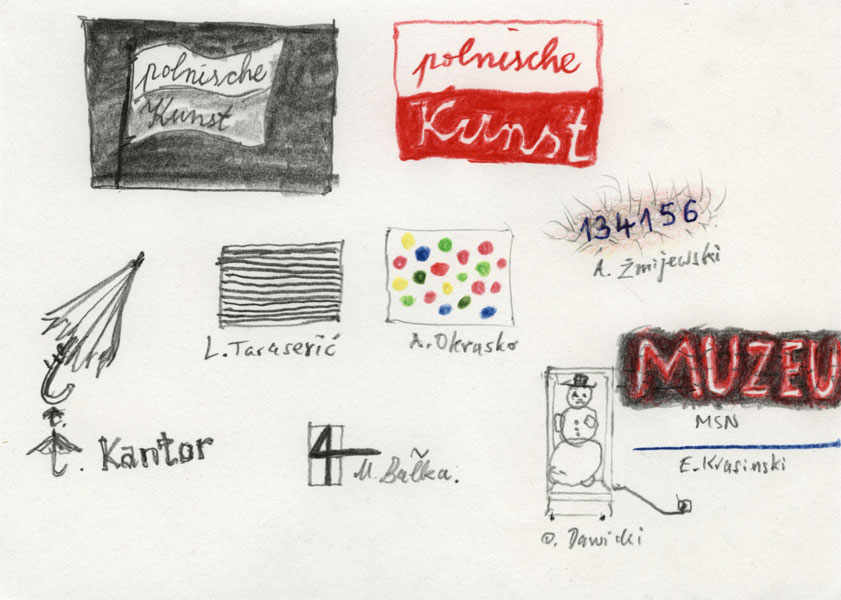 polnische
Kunst
polnische
Kunst
134156
A. Żmijewski
L. Taraserić
A. Okrasko
MUZEU
MSN
Kantor
M. Bałka.
E. Krasinski
O. Dawicki